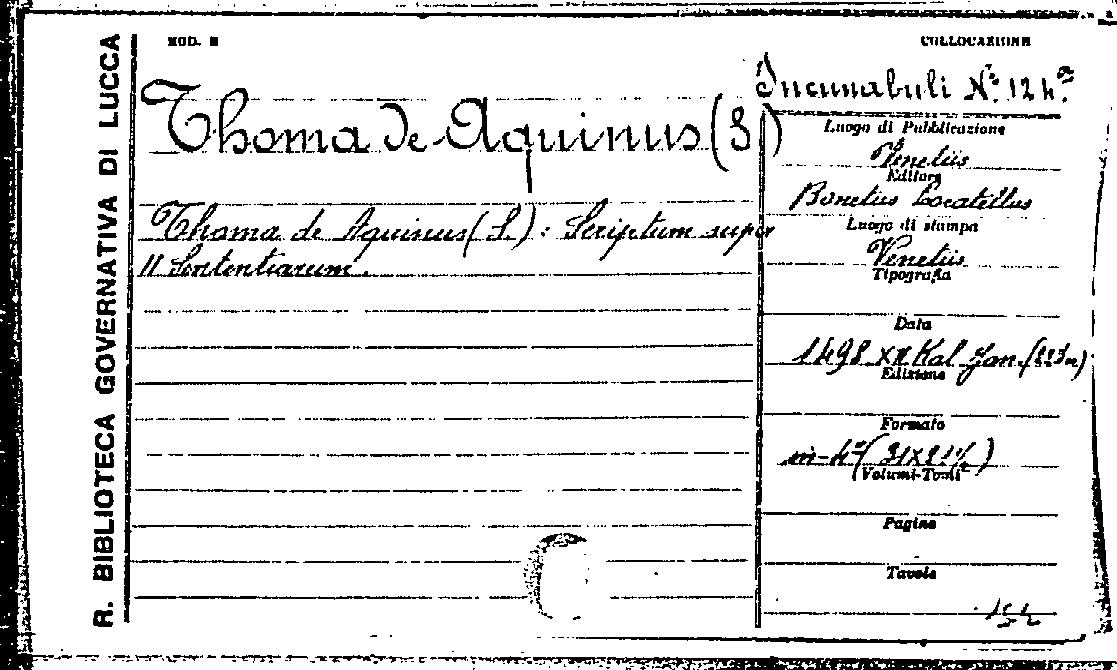 R. BIBLIOTECA GOVERNATIVA DI LUCCA
MOD. B
COLLOCAZIONE
Incunabuli N.º 124.
Thoma de Aquinus (S)
Thoma de Aquinus (S.): Scriptum super
II Sententiarum.
Luogo di Pubblicazione
Venetiis
Editore
Bonetus Locatellus
Luogo di stampa
Venetiis
Tipografia
Data
1498 XII Kal Jan.
Edizione
Formato
in-4º (31x21½)
Volumi-Tomi
Pagine
Tavole